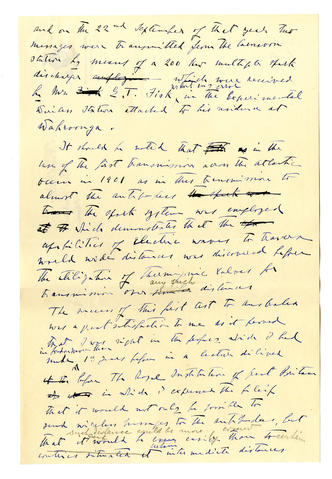 and on the 22nd September of that year two
messages were transmitted from the Carnarvon
station by means of a 200 kw multiple spark
discharge which were received
by Mr E. T. Fisk, in the Experimental
Wireless Station attached to his residence at
Wahroonga.
It should be noted that as in the
case of the first transmission across the Atlantic
ocean in 1901 as in this transmission to
almost the antipodes the spark
the spark system was employed
which demonstrates that the
capabilities of electric waves to traverse
world wide distances was discovered before
the utilization of thermionic valves for
transmission over any such distances
The success of this first test to Australia
was a great satisfaction to me as it proved
that I was right in the papers which I had
made 10 years before in a lecture delivered
before the Royal Institution of Great Britain
in which I expressed the belief
that it would not only be possible to
send wireless messages to the antipodes, but
that such distance could be more
that it would be easily than to certain
countries situated at intermediate distances